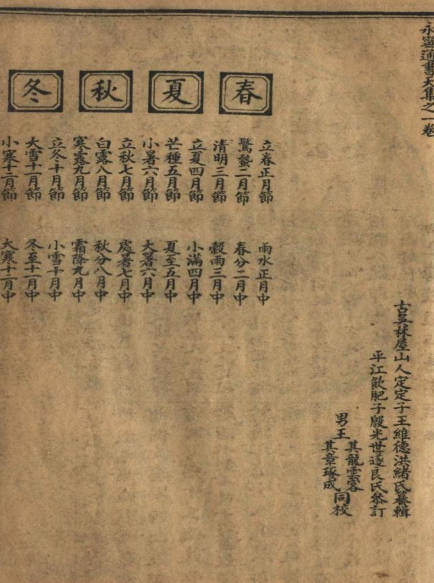 永寧通書天集之一卷
古吳林屋山人定定子王維德洪緒氏纂輯
平江飲肥子殷光世遂良氏叅訂
男王
其龍雲客
其章琢成
同校
春
夏
秋
冬
立春正月節 雨水正月中
驚蟄二月節 春分二月中
清明三月節 穀雨三月中
立夏四月節 小滿四月中
芒種五月節 夏至五月中
小暑六月節 大暑六月中
立秋七月節 處暑七月中
白露八月節 秋分八月中
寒露九月節 霜降九月中
立冬十月節 小雪十月中
大雪十一月節 冬至十一月中
小寒十二月節 大寒十二月中